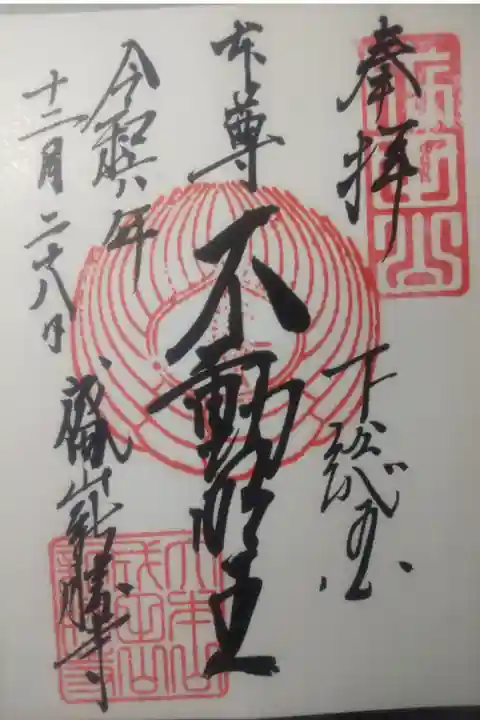 奉拝
下総国
本尊
不動明王
令和六年
十二月二十八日
成田山新勝寺